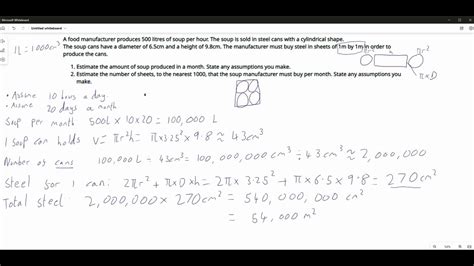 Microsoft Whiteboard
Untitled whiteboard
1L = 1000cm³
A food manufacturer produces 500 litres of soup per hour. The soup is sold in steel cans with a cylindrical shape.
The soup cans have a diameter of 6.5cm and a height of 9.8cm. The manufacturer must buy steel in sheets of 1m by 1m in order to
produce the cans.
πr²
πxD
1. Estimate the amount of soup produced in a month. State any assumptions you make.
2. Estimate the number of sheets, to the nearest 1000, that the soup manufacturer must buy per month. State any assumptions you
make.
• Assume 10 hours a day.
• Assume 20 days a month
Soup per month 500L x 10x20 = 100,000 L
1 soup can holds V = πr²h = π x 3.25² x 9.8 ≈ 43cm³
Number of cans 100,000L ÷ 43cm³ = 100,000,000 cm³ ÷ 43 cm³ ≈ 2,000,000
Steel for 1 can: 2πr² + πxDxh = 2π x 3.25² + π x 6.5 x 9.8 = 270cm²
Total steel 2,000,000 x 270cm² = 540,000,000 cm²
= 54,000 m²